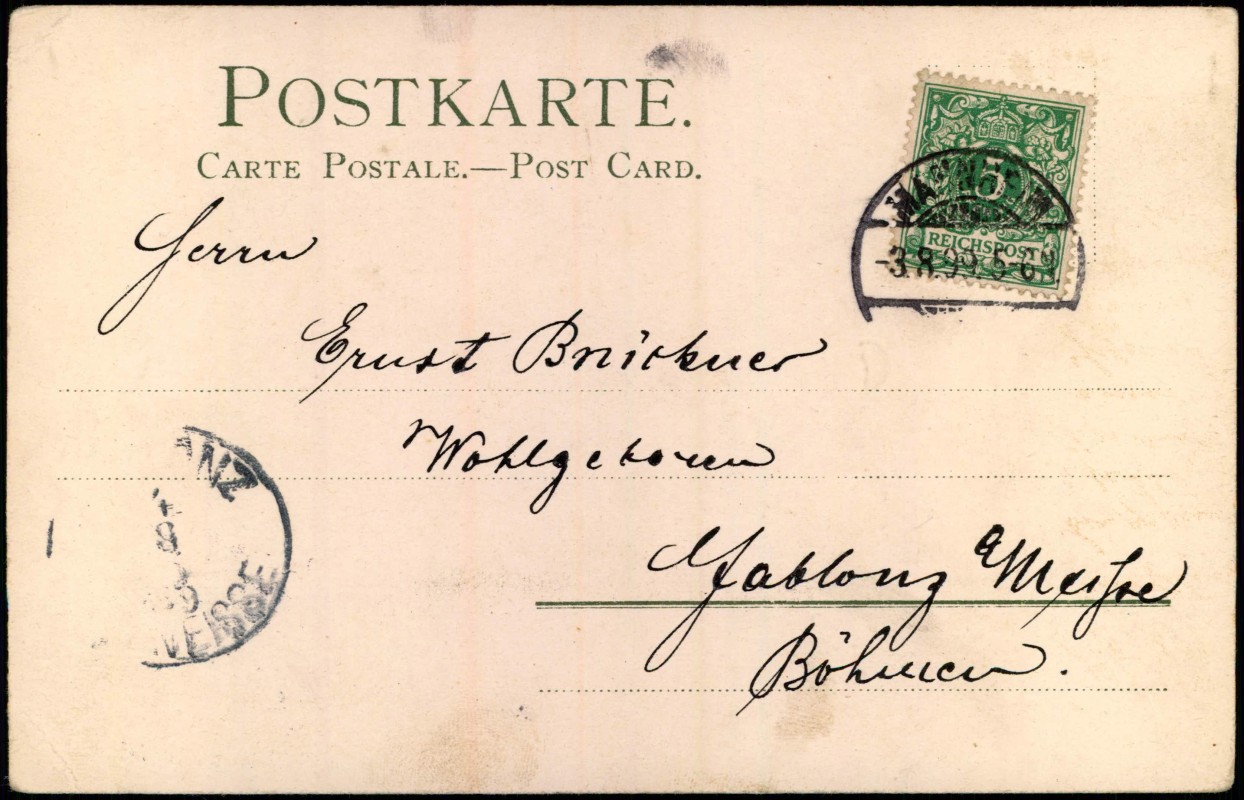 POSTKARTE.
CARTE POSTALE.—POST CARD.
5
REICHSPOST
MANNHEIM
-3.8.99. 5-6N
Herrn
Ernst Brückner
Wohlgeboren
Gablonz a/Neisse
Böhmen.
ANZ
4
8
NEISSE